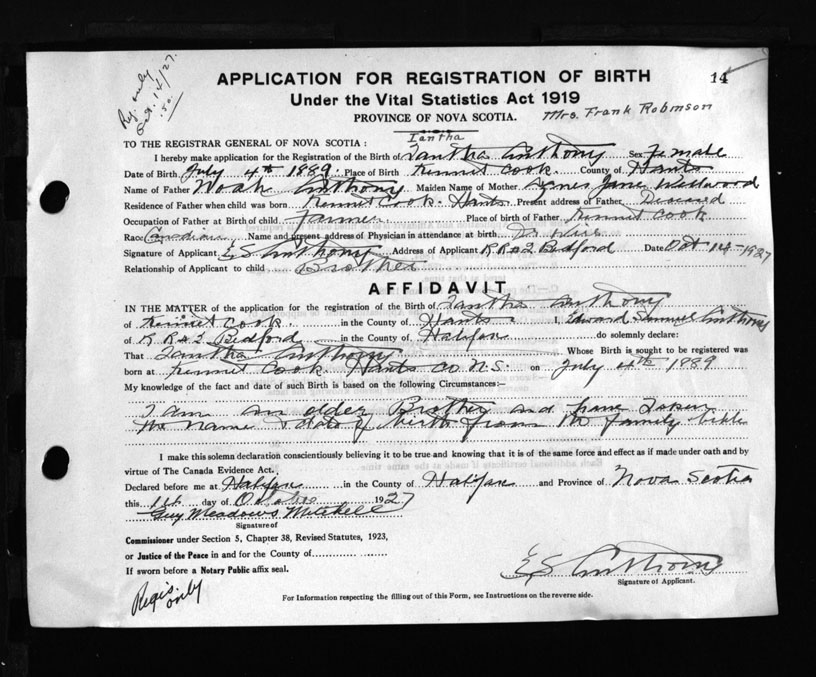 Reg. only
Oct. 14/27.
.50
14
APPLICATION FOR REGISTRATION OF BIRTH
Under the Vital Statistics Act 1919
PROVINCE OF NOVA SCOTIA.
Mrs. Frank Robinson
Iantha
TO THE REGISTRAR GENERAL OF NOVA SCOTIA :
I hereby make application for the Registration of the Birth of Iantha Anthony Sex Female
Date of Birth July 4th 1889 Place of Birth Kennet Cook County of Hants
Name of Father Noah Anthony Maiden Name of Mother Agnes Jane Westwood
Residence of Father when child was born Kennet Cook Hants Present address of Father Deceased
Occupation of Father at Birth of child Farmer Place of birth of Father Kennet Cook
Race Canadian Name and present address of Physician in attendance at birth Dr Weir
Signature of Applicant E S Anthony Address of Applicant R R #2 Bedford Date Oct 14-1927
Relationship of Applicant to child Brother
AFFIDAVIT
IN THE MATTER of the application for the registration of the Birth of Iantha Anthony
of Kennet Cook in the County of Hants I, Edward Samuel Anthony
of R R #2 Bedford in the County of Halifax do solemnly declare:
That Iantha Anthony Whose Birth is sought to be registered was
born at Kennet Cook Hants Co N.S. on July 4th 1889
My knowledge of the fact and date of such Birth is based on the following Circumstances:—
I am an older Brother and have taken
the name & date of birth from the family bible
I make this solemn declaration conscientiously believing it to be true and knowing that it is of the same force and effect as if made under oath and by
virtue of The Canada Evidence Act.
Declared before me at Halifax in the County of Halifax and Province of Nova Scotia
this day of October 1927
Guy Meadows Mitchell
Signature of
Commissioner under Section 5, Chapter 38, Revised Statutes, 1923,
or Justice of the Peace in and for the County of
If sworn before a Notary Public affix seal.
E S Anthony
Signature of Applicant.
Regis. only
For Information respecting the filling out of this Form, see Instructions on the reverse side.